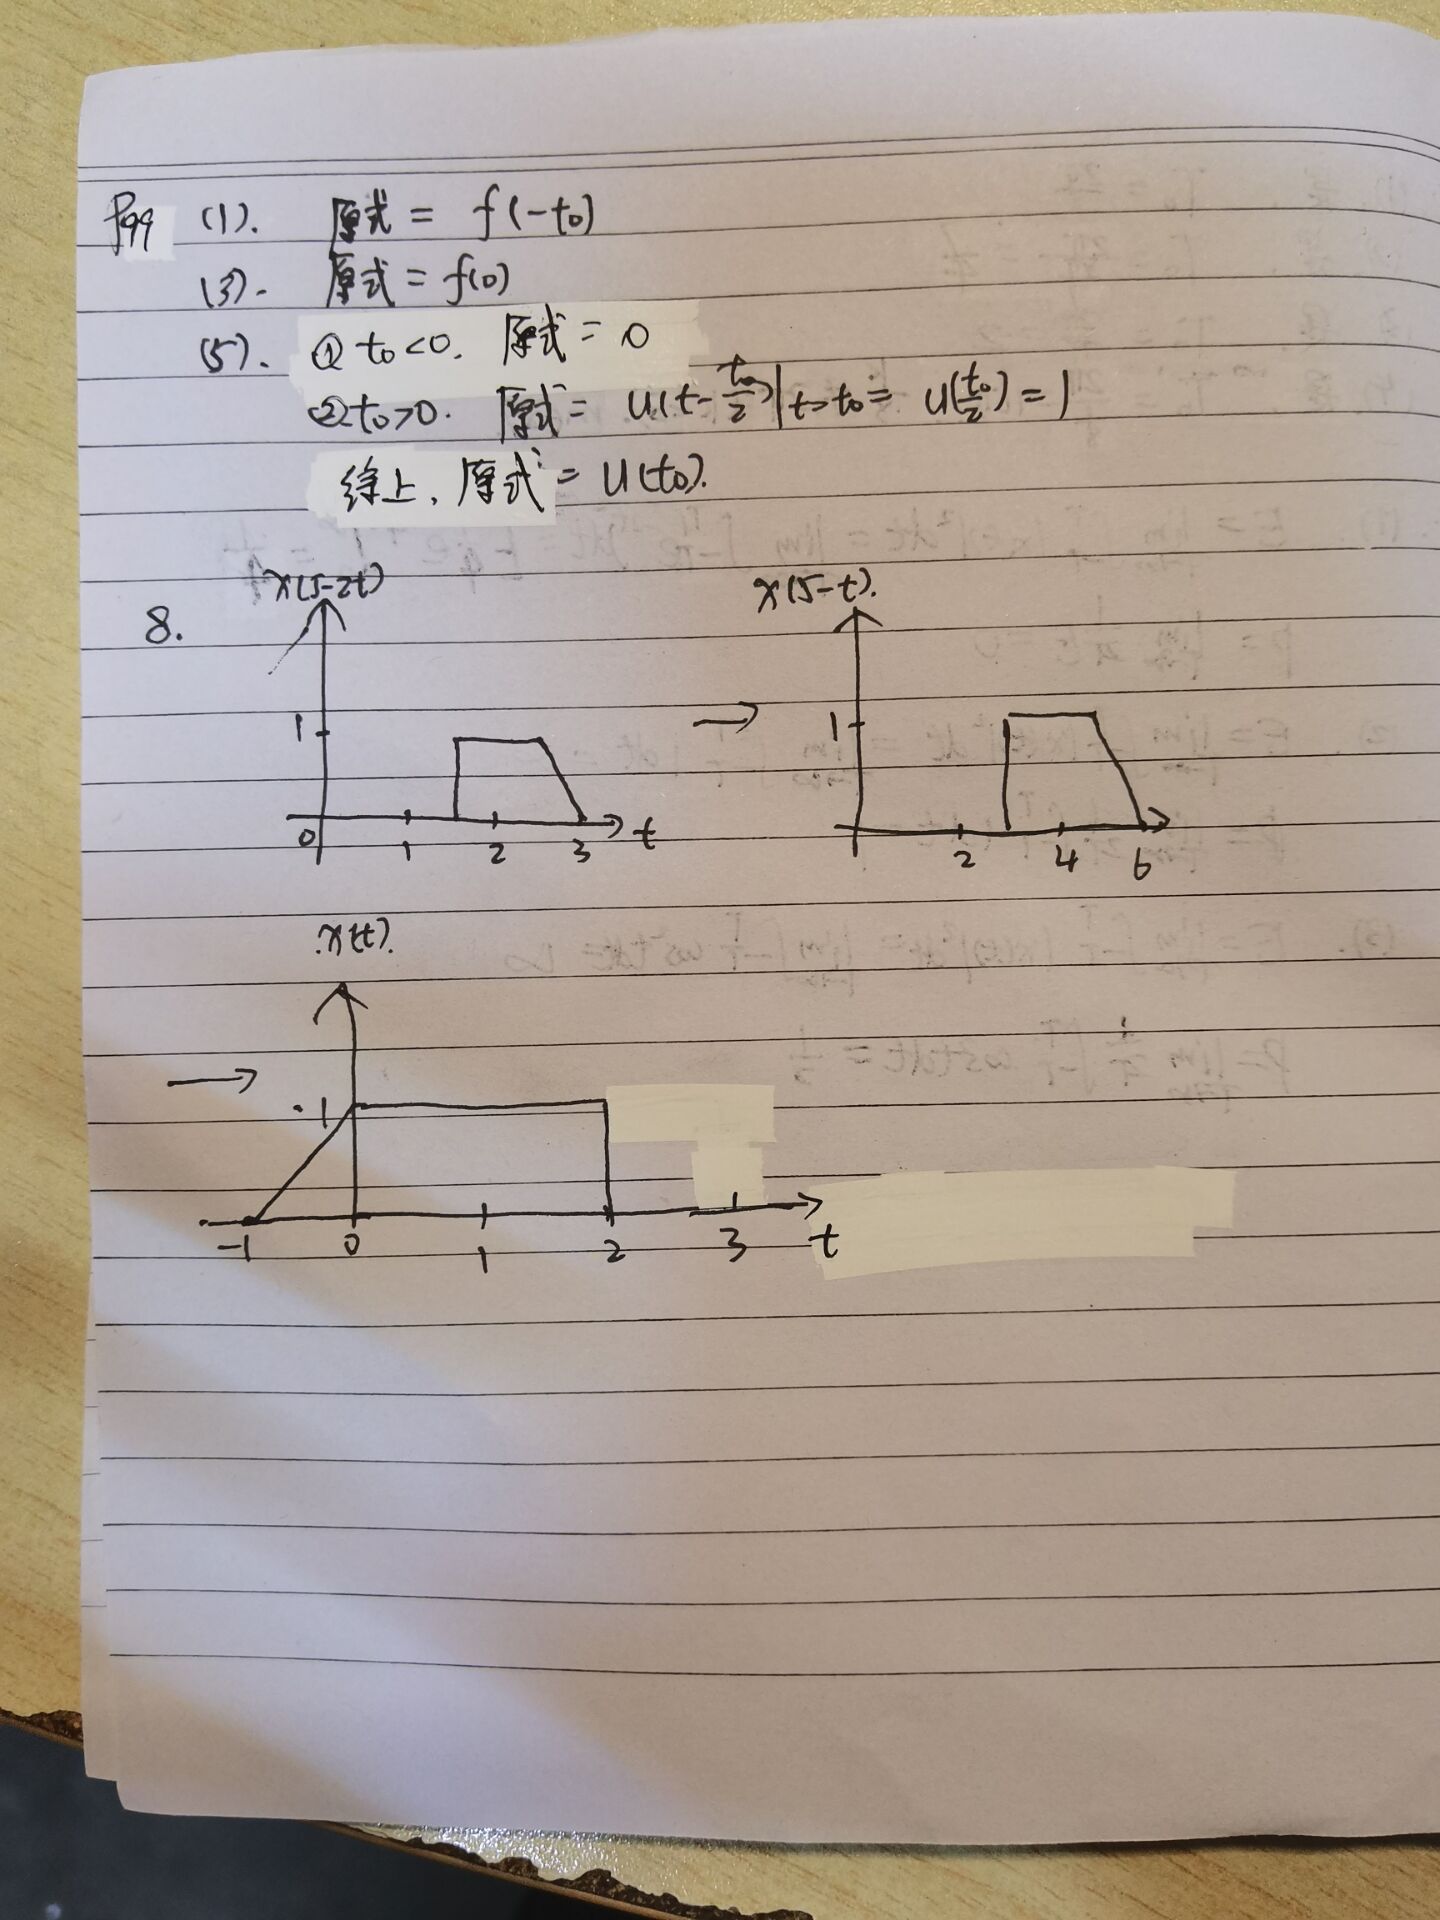 P99 (1). 原式 = f(-t₀)
(3). 原式 = f(0)
(5). ① t₀<0. 原式 = 0
② t₀>0. 原式 = u(t-t₀/2)|t=t₀ = u(t₀/2) = 1
综上, 原式 = u(t₀).
8.
x(5-2t)
1
0 1 2 3 t
→
x(5-t).
1
2 4 6
x(t).
→
1
-1 0 1 2 3 t